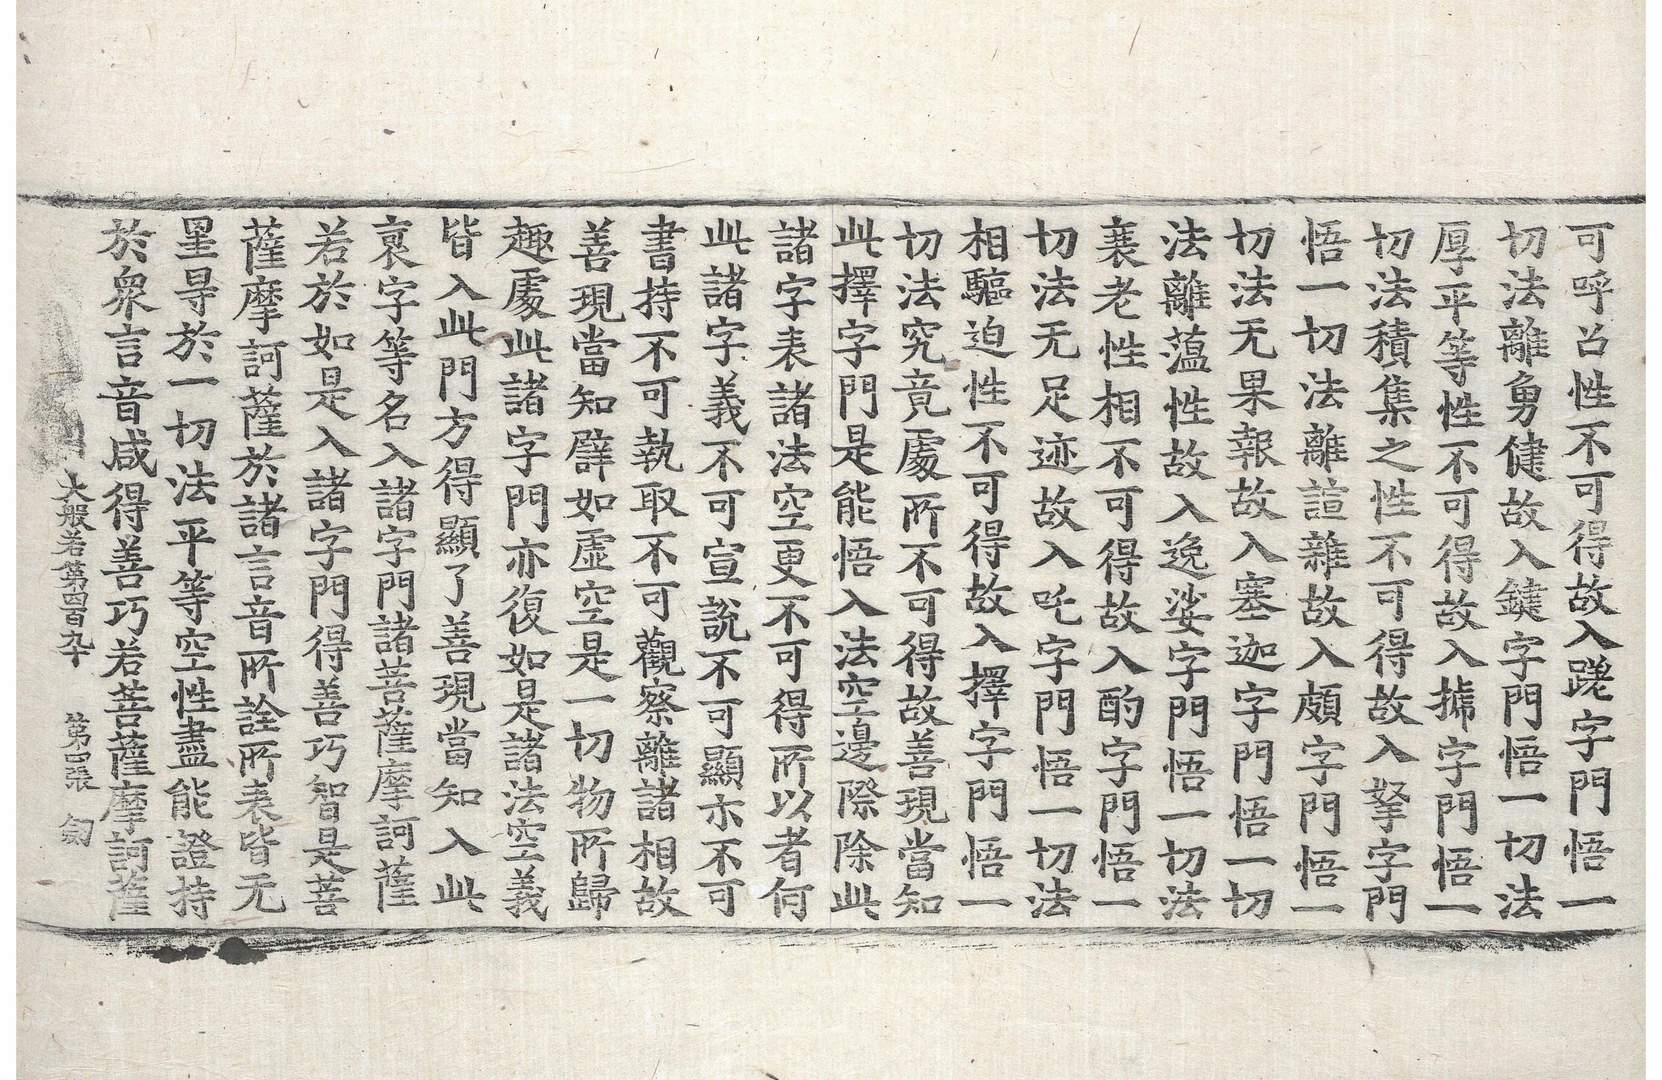 可呼召性不可得故入蹉字門悟一
切法離勇健故入鍵字門悟一切法
厚平等性不可得故入搋字門悟一
切法積集之性不可得故入拏字門
悟一切法離諠雜故入頗字門悟一
切法无果報故入塞迦字門悟一切
法離蘊性故入逸娑字門悟一切法
衰老性相不可得故入酌字門悟一
切法无足迹故入吒字門悟一切法
相驅迫性不可得故入擇字門悟一
切法究竟處所不可得故善現當知
此擇字門是能悟入法空邊際除此
諸字表諸法空更不可得所以者何
此諸字義不可宣說不可顯示不可
書持不可執取不可觀察離諸相故
善現當知譬如虛空是一切物所歸
趣處此諸字門亦復如是諸法空義
皆入此門方得顯了善現當知入此
裒字等名入諸字門諸菩薩摩訶薩
若於如是入諸字門得善巧智是菩
薩摩訶薩於諸言音所詮所表皆无
罣㝵於一切法平等空性盡能證持
於眾言音咸得善巧若菩薩摩訶薩
大般若第四百九十 第四張 劒